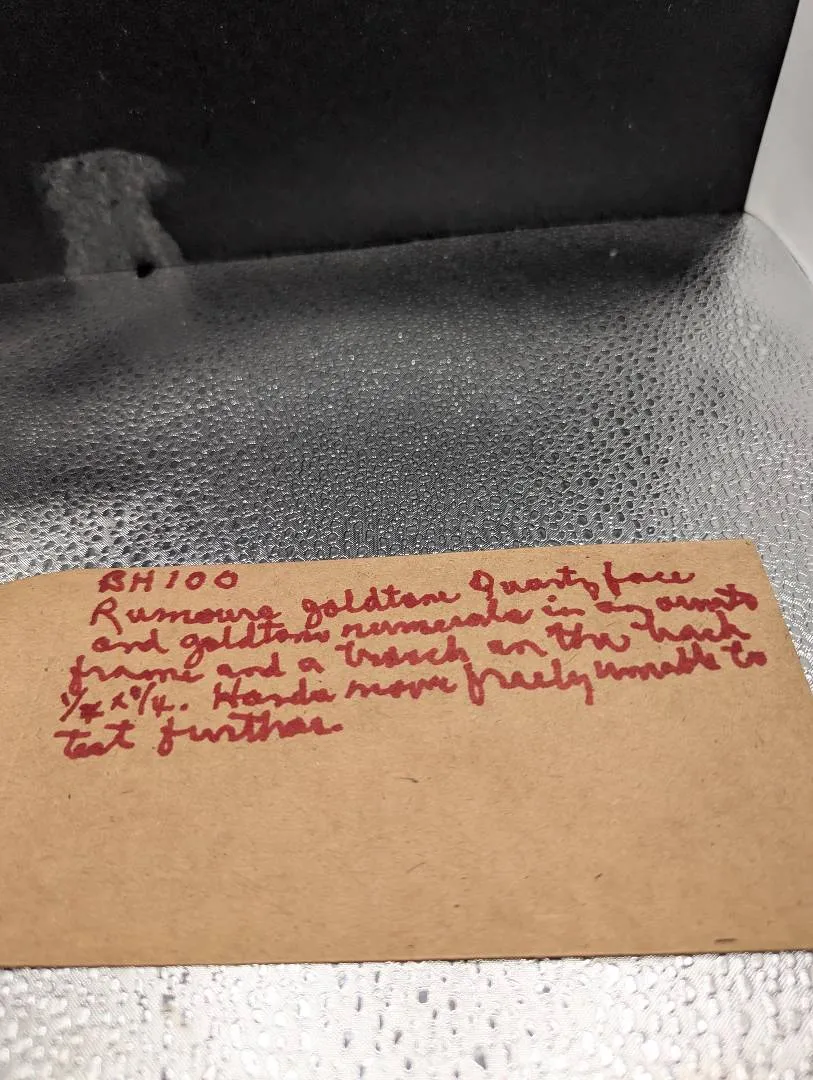 BH100
Rumours goldtone Quartz face
and goldtone numerals in an ornate
frame and a brooch on the back
Hands move freely unable to
test further.